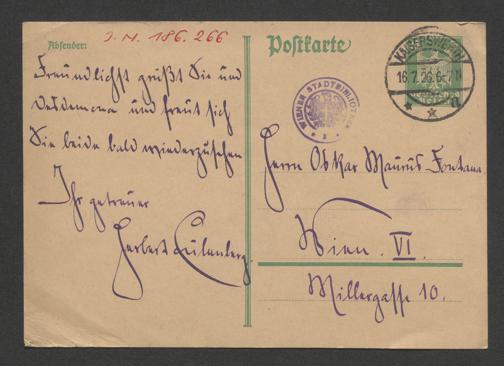 J.N. 186.266
Absender:
Postkarte
KAISERSWERTH
16.7.26.6-7N
* * a
WIENER STADTBIBLIOTHEK
Freundlichst grüßt Sie und
Desdemona und freut sich
Sie beide bald wiederzusehen
Ihr getreuer
Herbert Eulenberg.
Herrn Oskar Maurus Fontana
Wien. VI.
Millergasse 10.